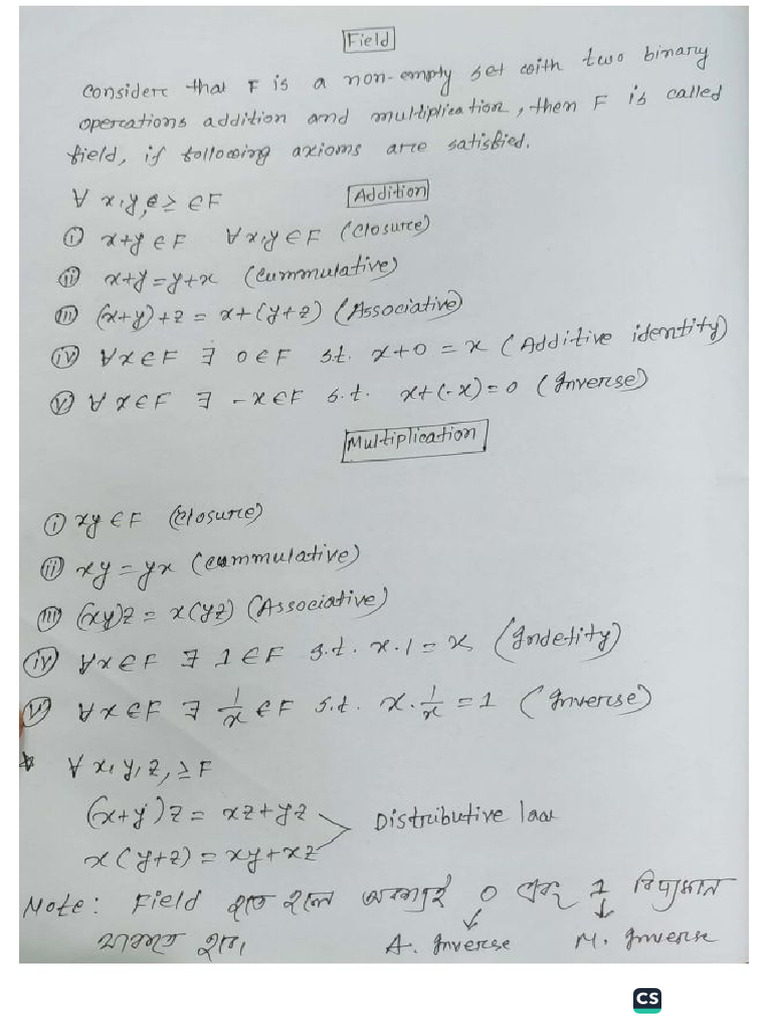 Field
Consider that F is a non-empty set with two binary
operations addition and multiplication, then F is called
field, if following axioms are satisfied.
∀ x,y, z ∈F
Addition
(i) x+y ∈F ∀x,y ∈F (Closure)
(ii) x+y = y+x (Cummulative)
(iii) (x+y)+z = x+(y+z) (Associative)
(iv) ∀x∈F ∃ 0∈F s.t. x+0 = x (Additive identity)
(v) ∀ x∈F ∃ -x∈F s.t. x+(-x)=0 (Inverse)
Multiplication
(i) xy ∈F (Closure)
(ii) xy = yx (Cummulative)
(iii) (xy)z = x(yz) (Associative)
(iv) ∀x∈F ∃ 1∈F s.t. x.1 = x (Indetity)
(v) ∀x∈F ∃ 1/x ∈F s.t. x.1/x = 1 (Inverse)
* ∀ x, y, z, ≥F
(x+y)z = xz+yz
Distributive law
x(y+z) = xy+xz
Note: Field হতে হলে অবশ্যই 0 এবং 1 বিদ্যমান
থাকতে হবে।
A. Inverse M. Inverse
CS